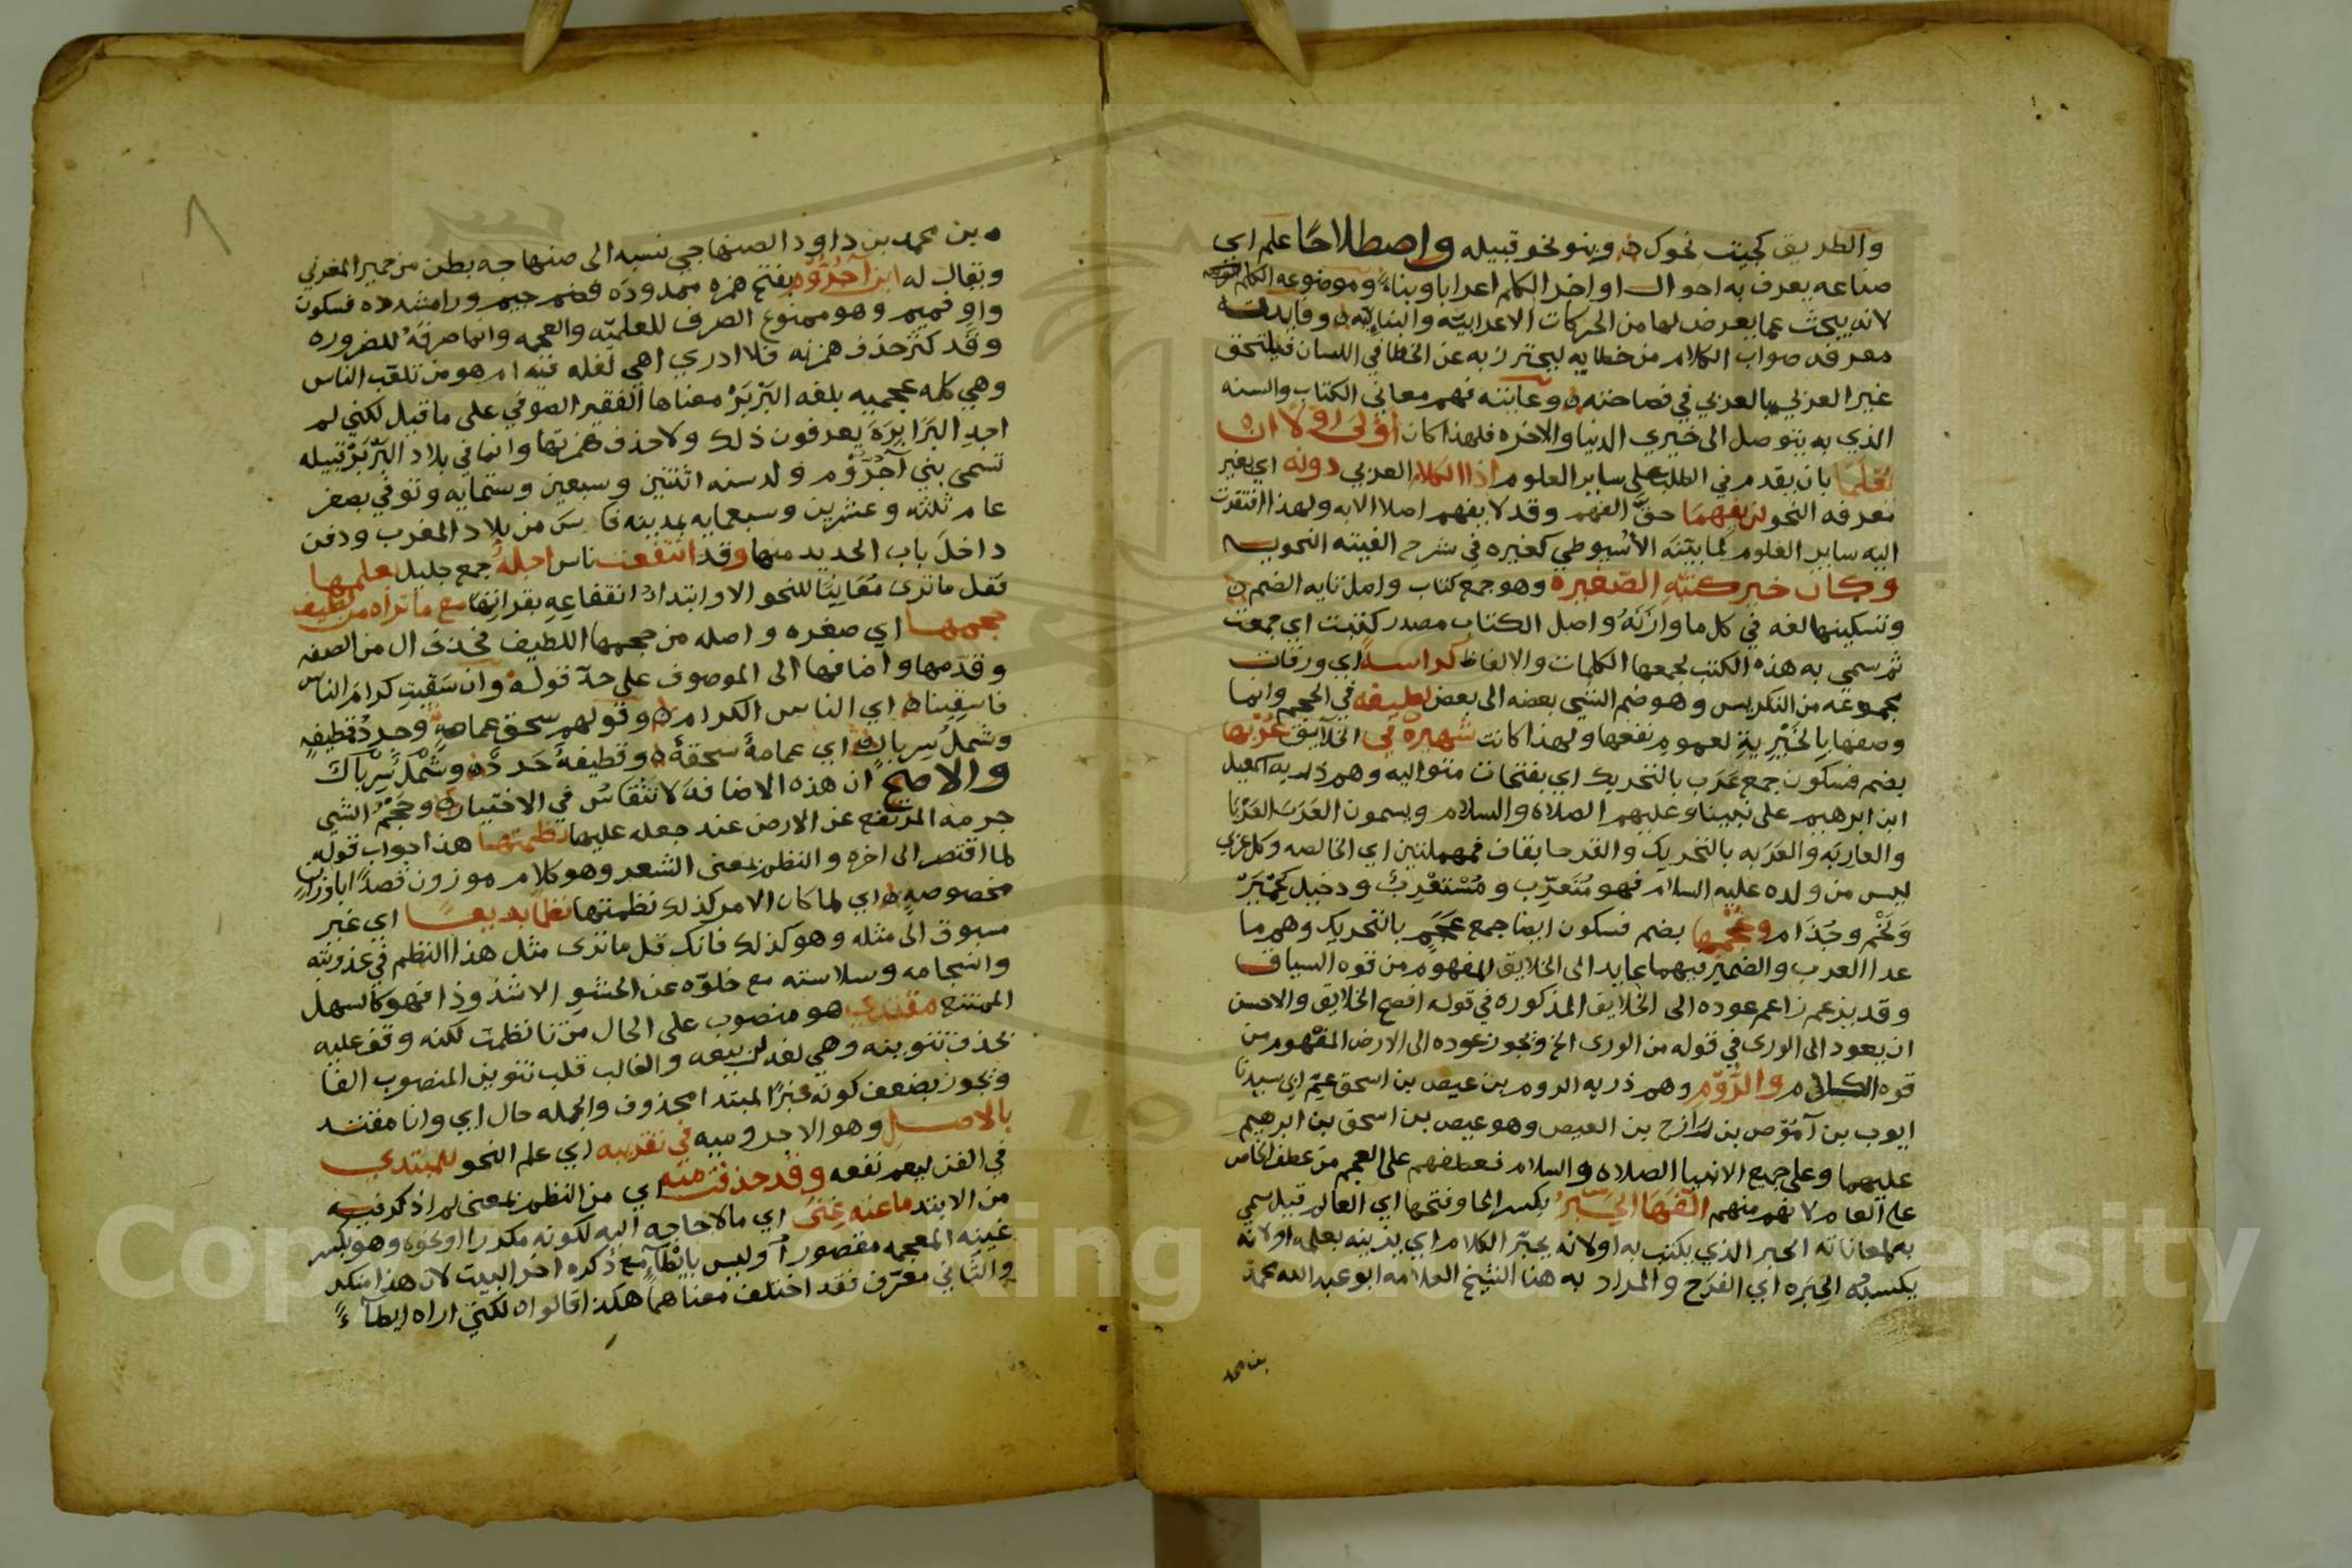 والطريق كجيت نحوك وبنو نحو قبيله واصطلاحًا علم اي
صناعه يعرف به احوال اواخر الكلم اعرابا وبناءً وموضوعه الكلم
لانه يبحث عما يعرض لها من الحركات الاعرابيّه والبنائيّه وفايدته
معرفه صواب الكلام من خطايه ليحترز به عن الخطا في اللسان فيلتحق
غير العربي بالعربي في فصاحته وغايته فهم معاني الكتاب والسنه
الذي به يتوصل الى خيري الدنيا والاخره فلهذا كان اَوْلَى اوّلًا ان
تُعْلَمَا بان يقدم في الطلب على ساير العلوم اذا الكلام العربي دونه اي بغير
معرفه النحو لن يفهمَا حقّ الفهم وقد لا يفهم اصلا الا به ولهذا افتقرت
اليه ساير العلوم كما بيّنَه الأسيوطي كغيره في شرح الفيته النحويه
وكان خير كتبه الصّغيره وهو جمع كتاب واصل تايه الضم
وتسكينها لغه في كل ما وازَنَهُ واصل الكتاب مصدر كتبت اي جمعت
ثم سمي به هذه الكتب لجمعها الكلمات والالفاظ كراسةً اي ورقات
مجموعه من التكريس وهو ضم الشي بعضه الى بعض لطيفه في الحجم وانما
وصفها بالخَيْريةِ لعموم نفعها ولهذا كانت شهيرَةً في الخلآيق عُرْبها
بضم فسكون جمع عَرَب بالتحريك اي بفتحات متواليه وهم ذريه اسمعيل
ابن ابرهيم على نبينا وعليهم الصلاه والسلام ويسمون العَرَب العَرْبَا
والعاربَه والعَرَبه بالتحريك والقرحا بقاف فمهملتين اي الخالصه وكل عربي
ليس من ولده عليه السلام فهو مُتَعرّب ومُسْتعْرِبٌ ودخيل كَحِمْيَرْ
وَلَخْم وجُذَام وعُجْمِها بضم فسكون ايضا جمع عَجَم بالتحريك وهم ما
عدا العرب والضمير فيهما عايد الى الخلايق المفهوم من قوه السياق
وقد يزعم زاعم عوده الى الخلايق المذكوره في قوله افصح الخلايق والاحسن
ان يعود الى الورى في قوله من الورى الخ ويجوز عوده الى الارض المفهوم من
قوه الكلام والرّوم وهم ذريه الروم بن عيص بن اسحق عمّ اي سيدنا
ايوب بن آموّص بن رَازح بن العيص وهو عيص بن اسحق بن ابرهيم
عليهما وعلى جميع الانبيا الصلاه والسلام فعطفهم على العجم من عطف الخاص
على العام لانهم منهم الّفَهَا الحَِبْرُ بكسر الحا وفتحها اي العالم قيل سمي
به لمعاناته الحبر الذي يكتب به او لانه يحبّر الكلام اي يزينه بعلمه او لانه
يكسبه الحِبَره اي الفرَح والمراد به هنا الشيخ العلامه ابو عبد الله محمد
بن محمد
بن محمد بن داود الصنهاجي نسبه الى صنهاجه بطن من حمير المغربي
ويقال له ابن آجُرُّوْم بفتح همزه ممدوده فضم جيم ورا مشدده فسكون
واو فميم وهو ممنوع الصرف للعلميّه والعجمه وانما صرفَهُ للضروره
وقد كثر حذف همزته فلا ادري اهي لغله فيه ام هو من تلقّب الناس
وهي كلمه عجميه بلغه البَرْبَرْ معناها الفقير الصوفي على ما قيل لكني لم
اجد البَرَابِرَة يعرفون ذلك ولا حذف همزتها وانما في بلاد البَرْبَرْ قبيله
تسمى بني آجُرُّوْم ولد سنه اثنتين وسبعين وستمايه وتوفي بصفر
عام ثلثه وعشرين وسبعمايه بمدينه فاس من بلاد المغرب ودفن
داخلَ باب الحديد منها وقد انتفعت ناس اجلهْ جمع جليل بعلمها
فقل ما ترى مُعَانيًا للنحو الا وابتداءُ انتفاعِهِ بقراتِها مع ما تراه من لطيف
حجمها اي صغره واصله من حجمها اللطيف فحذف ال من الصفه
وقدّمها واضافها الى الموصوف على حدّ قوله وان سَقيتِ كرامَ الناس
فاسقينا اي الناس الكرام وقولهم سحقُ عمامةٍ وجردُ قطيفةٍ
وشملُ سِرْباكٍ اي عمامةٌ سحقةٌ وقطيفةٌ جَرْدَه وشَمْل سِرْبَاكَ
والاصح ان هذه الاضافة لا تنقاسُ في الاختيار وحَجْمُ الشي
جرمه المرتفع عن الارض عند جعله عليها نظمتها هذا جواب قوله
لما اقتصر الى اخره والنظم بمعنى الشعر وهو كلام موزون قصدًا باوزانٍ
مخصوصهٍ اي لما كان الامر كذلك نظمتها نظما بديعًا اي غير
مسبوق الى مثله وهو كذلك فانك قل ما ترى مثل هذا النظم في عذوبته
وانسجامه وسلاسته مع خلوّه عن الحشو الا شذوذا فهو كالسهل
الممتنع مقتدي هو منصوب على الحال من تا نظمت لكنه وقف عليه
بحذف تنوينه وهي لغه لربيعه والغالب قلب تنوين المنصوب الفا
ويجوز بضعف كونه خبرًا لمبتدا محذوف والجمله حال اي وانا مقتد
بالاصل وهو الاجروميه في تقريبه اي علم النحو للمبتدي
في الفن ليعم نفعه وقد حذفت منه اي من النظم بمعنى لم اذكر فيه
من الابتدا ما عنه غنى اي ما لا حاجه اليه لكونه مكررا او نحوه وهو بكسر
غينه المعجمه مقصورا وليس بايْطآءٍ مع ذكره اخر البيت لان هذا منكر
والثاني معرّف فقد اختلف معناهما هكذا قالوا لكني اراه ايطآءً